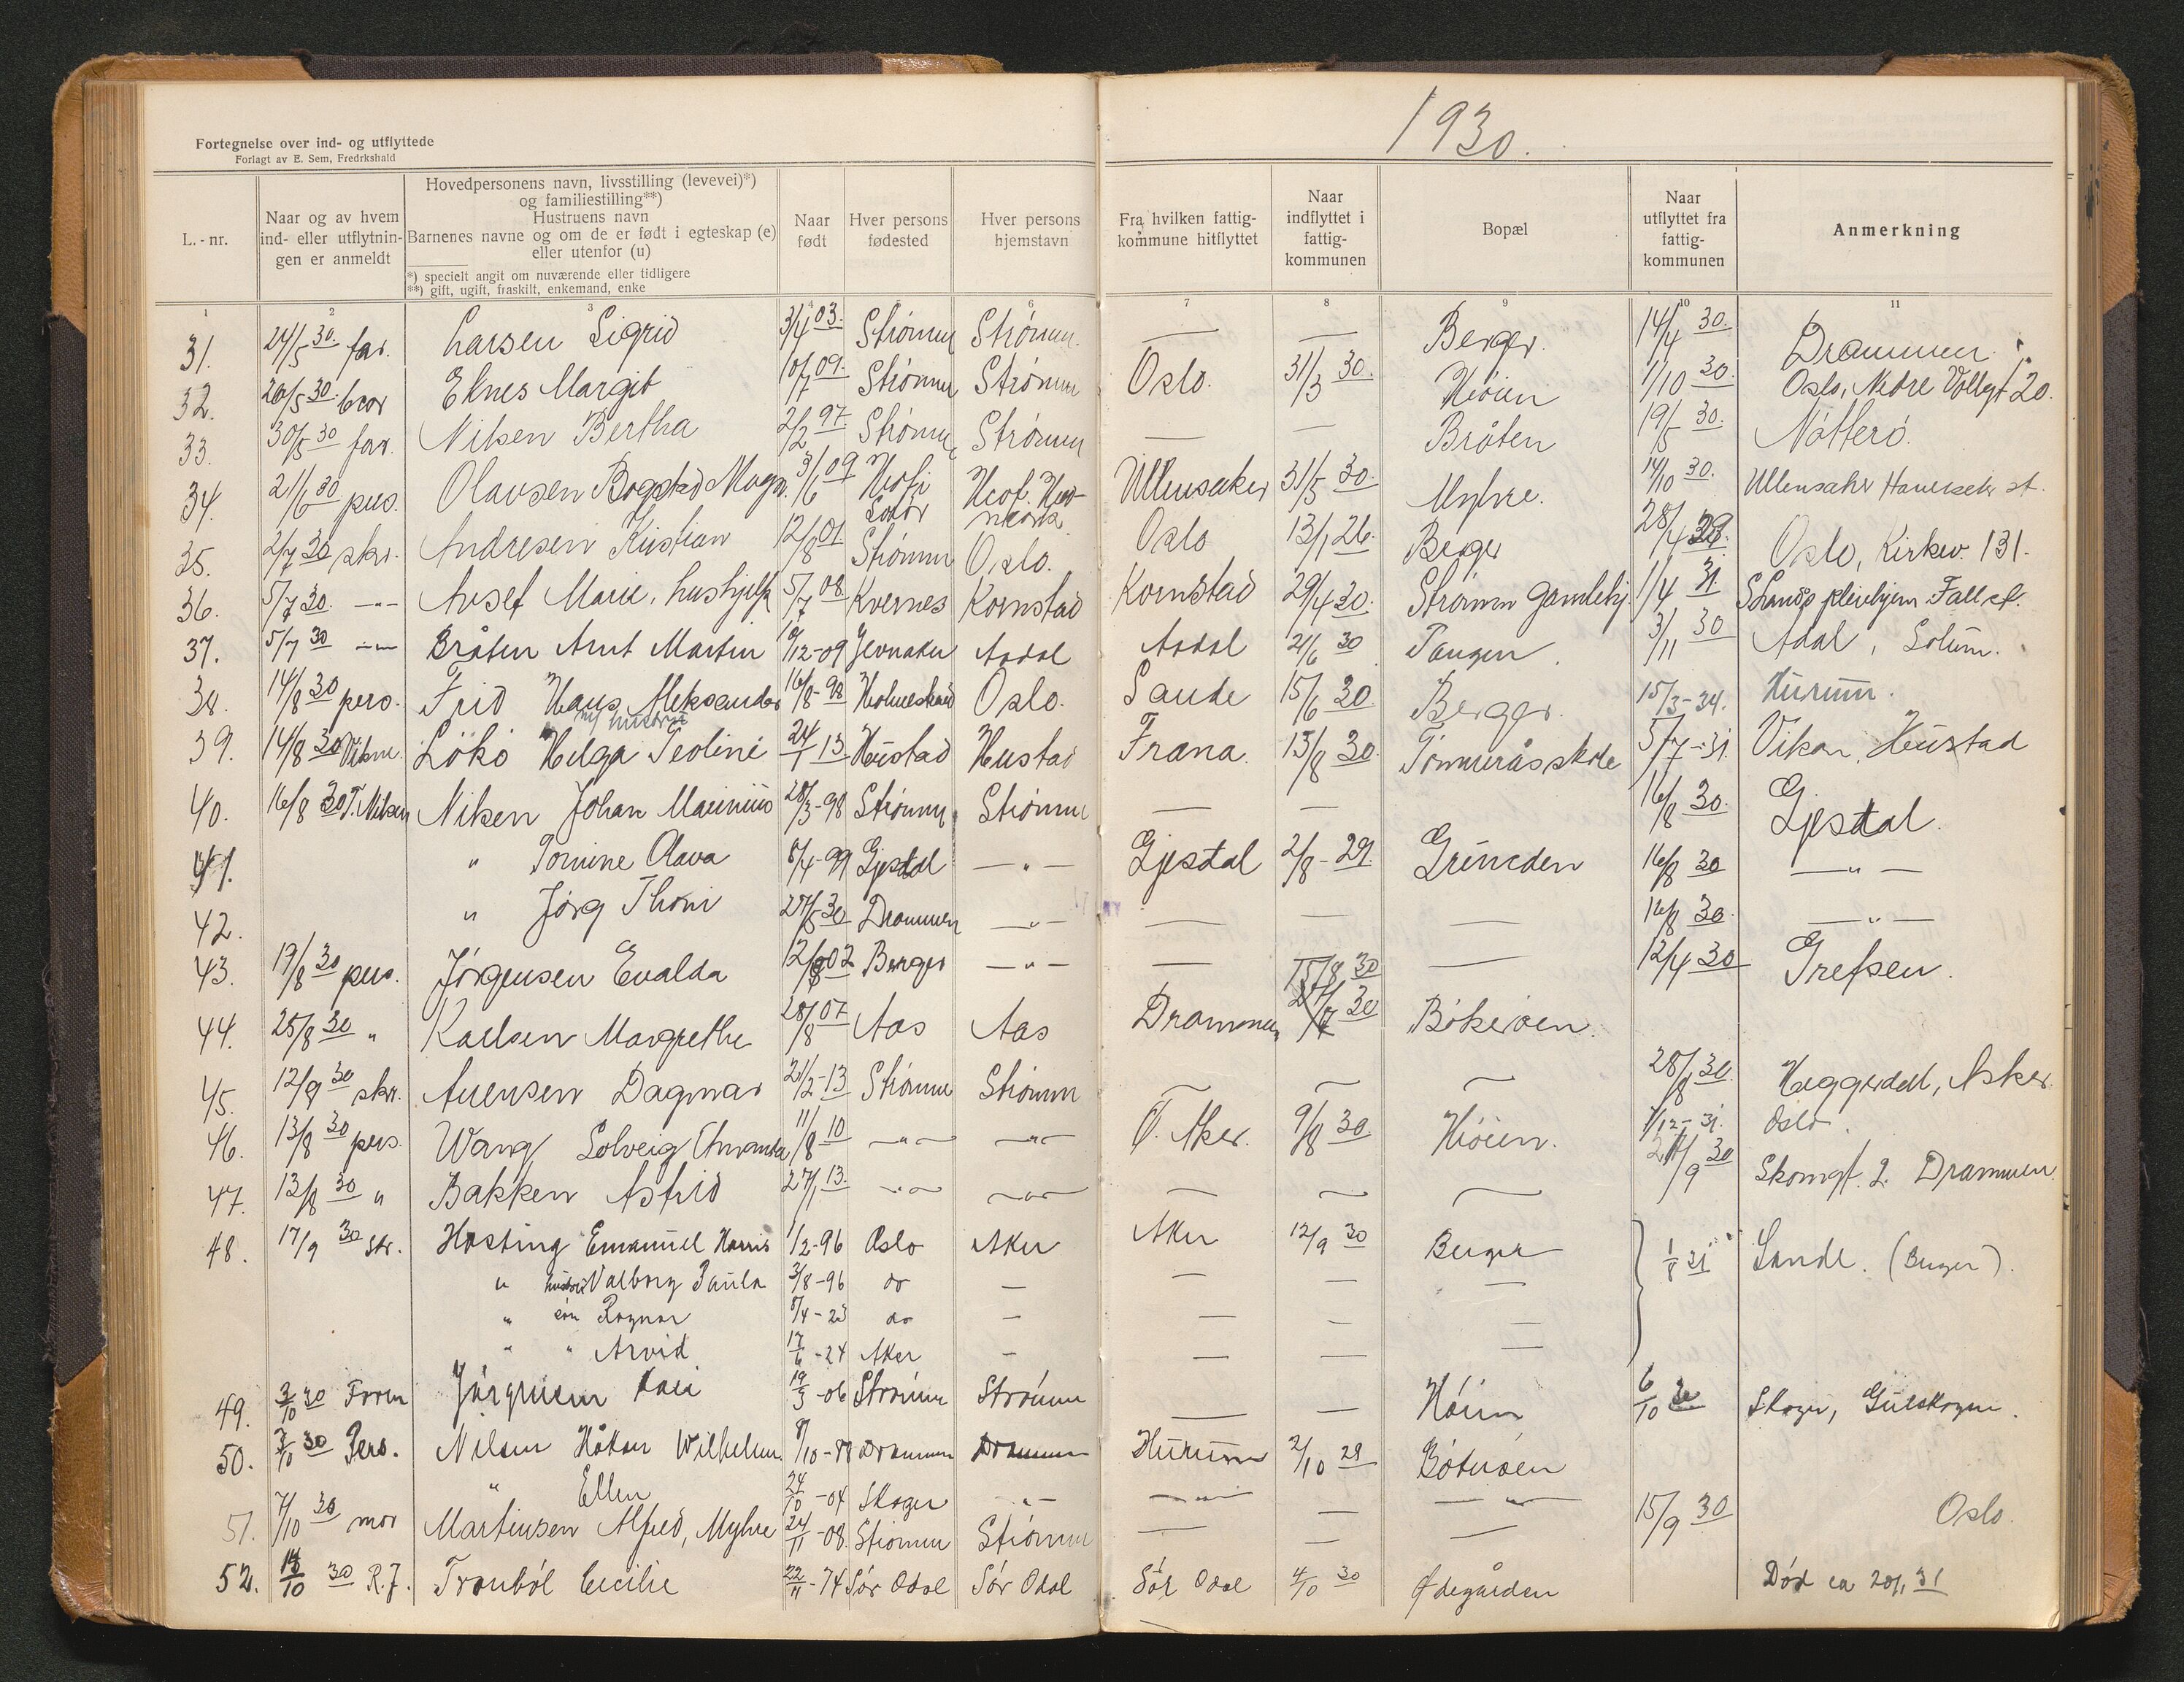 1930.
Fortegnelse over ind- og utflyttede
Forlagt av E. Sem, Fredrkshald
L.-nr.
Naar og av hvem
ind- eller utflytnin-
gen er anmeldt
Hovedpersonens navn, livsstilling (levevei)*)
og familiestilling**)
Hustruens navn
Barnenes navne og om de er født i egteskap (e)
eller utenfor (u)
*) specielt angit om nuværende eller tidligere
**) gift, ugift, fraskilt, enkemand, enke
Naar
født
Hver persons
fødested
Hver persons
hjemstavn
Fra hvilken fattig-
kommune hitflyttet
Naar
indflyttet i
fattig-
kommunen
Bopæl
Naar
utflyttet fra
fattig-
kommunen
Anmerkning
1 2 3 4 5 6 7 8 9 10 11
31. 24/5 30. far. Larsen Sigrid 3/4 03. Strømm Strømm. — — Berger. 14/4 30. Drammen.
32. 26/5 30. bror Eknes Margit 10/7 09. Strømm Strømm Oslo. 31/3 30. Høien 1/10 30. Oslo, Nedre Vollgt 20.
33. 30/5 30 far. Nilsen Bertha 2/2 97. Strømm Strømm — — Bråten 19/5 30. Nøtterø.
34. 21/6 30 pers. Olausen Bogstad Magn. 3/6 09 Hof i Solør Hof. Hedmark Ullensaker 31/5 30. Myhre. 14/10 30. Ullensaker st.
35. 2/7 30 skr. Andresen Kristian 12/8 01. Strømm Oslo. Oslo 13/1 26. Berger 28/4 29. Oslo, Kirkev. 131.
36. 5/7 30. -"- Marie, hushjelp 5/7 08 Kvernes Kornstad Kornstad 29/4 30. Strømm Gamlehj. 1/4 31. pleiehjem
37. 5/7 30 -"- Bråten Arnt Martin 10/12-09 Jevnaker Aadal Aadal 24/6 30 Tangen. 3/11 30 Ådal, Solum.
38. 14/8 30 pers. Frid Hans Aleksander 16/8-98 Holmestrand Oslo. Sande 15/6 30 Berger. 15/3-34. Hurum.
m/ hustru
39. 14/8 30 Løkø Helga Teoline 24/1 13. Hustad Hustad Fræna. 13/8 30. Tømmeråsskole 5/7-31. Vikan, Hustad
40. 16/8 30 T. Nilsen Nilsen Johan Marinius 28/3-98 Strømm Strømm — — 16/8 30. Gjesdal.
41. " Tomine Olava 8/4-99 Gjesdal —"— Gjesdal 2/8-29. 16/8 30 —"—
42. " Jørg Thom 27/5 30 Drammen —"— — — — 16/8 30. —"—
43. 19/8 30 pers. Jørgensen Evalda 12/8 02 Berger —"— — — 12/4 30 Grefsen.
44. 25/8 30 " Karlsen Margrethe 28/8 07 Aas Aas Drammen 15/8 30 Bøkerøen.
45. 12/9 30 skr. Dagmar 21/2-13 Strømm Strømm — — — 28/8 30. Heggedal, Asker.
46. 13/8 30 pers. Wang Solveig Amanda 11/8 10 —"— —"— Ø. Aker. 9/8 30. Høien. 1/12-31. Oslo.
47. 13/8 30 " Bakken Astrid 27/1 13. —"— —"— — — — 21/9 30 Skomgt. 2. Drammen.
48. 17/9 30 Str. Hasting Emanuel Harris 1/2-96 Oslo Aker Aker 12/9 30 Berger 1/8 31 Sande. (Berger).
" hustru Valborg Paula 3/8-96 do — — — —
" søn Ragnar 8/4-23 do — — — —
" " Arvid 17/6-24 Aker — — — —
49. 3/10 30 Jørgensen Kari 19/3-06 Strømm Strømm — — Høien 6/10 30 Skoger, Gulskogen.
50. 7/10 30 Pers. Nilsen Håkon Wilhelm 8/10-88 Drammen Drammen Hurum 2/10 29 Bøkerøen
" Ellen 24/10-04 Skoger -"- —"— — —"—
51. 7/10 30 mor Martinsen Alfred, Myhre 24/11-08. Strømm Strømm — — — 15/9 30 Oslo.
52. 14/10 30 R.J. Tronbøl Cecilie 22/11-74 Sør Odal Sør Odal Sør Odal 4/10 30 Ødegården Død ca 20/1 31